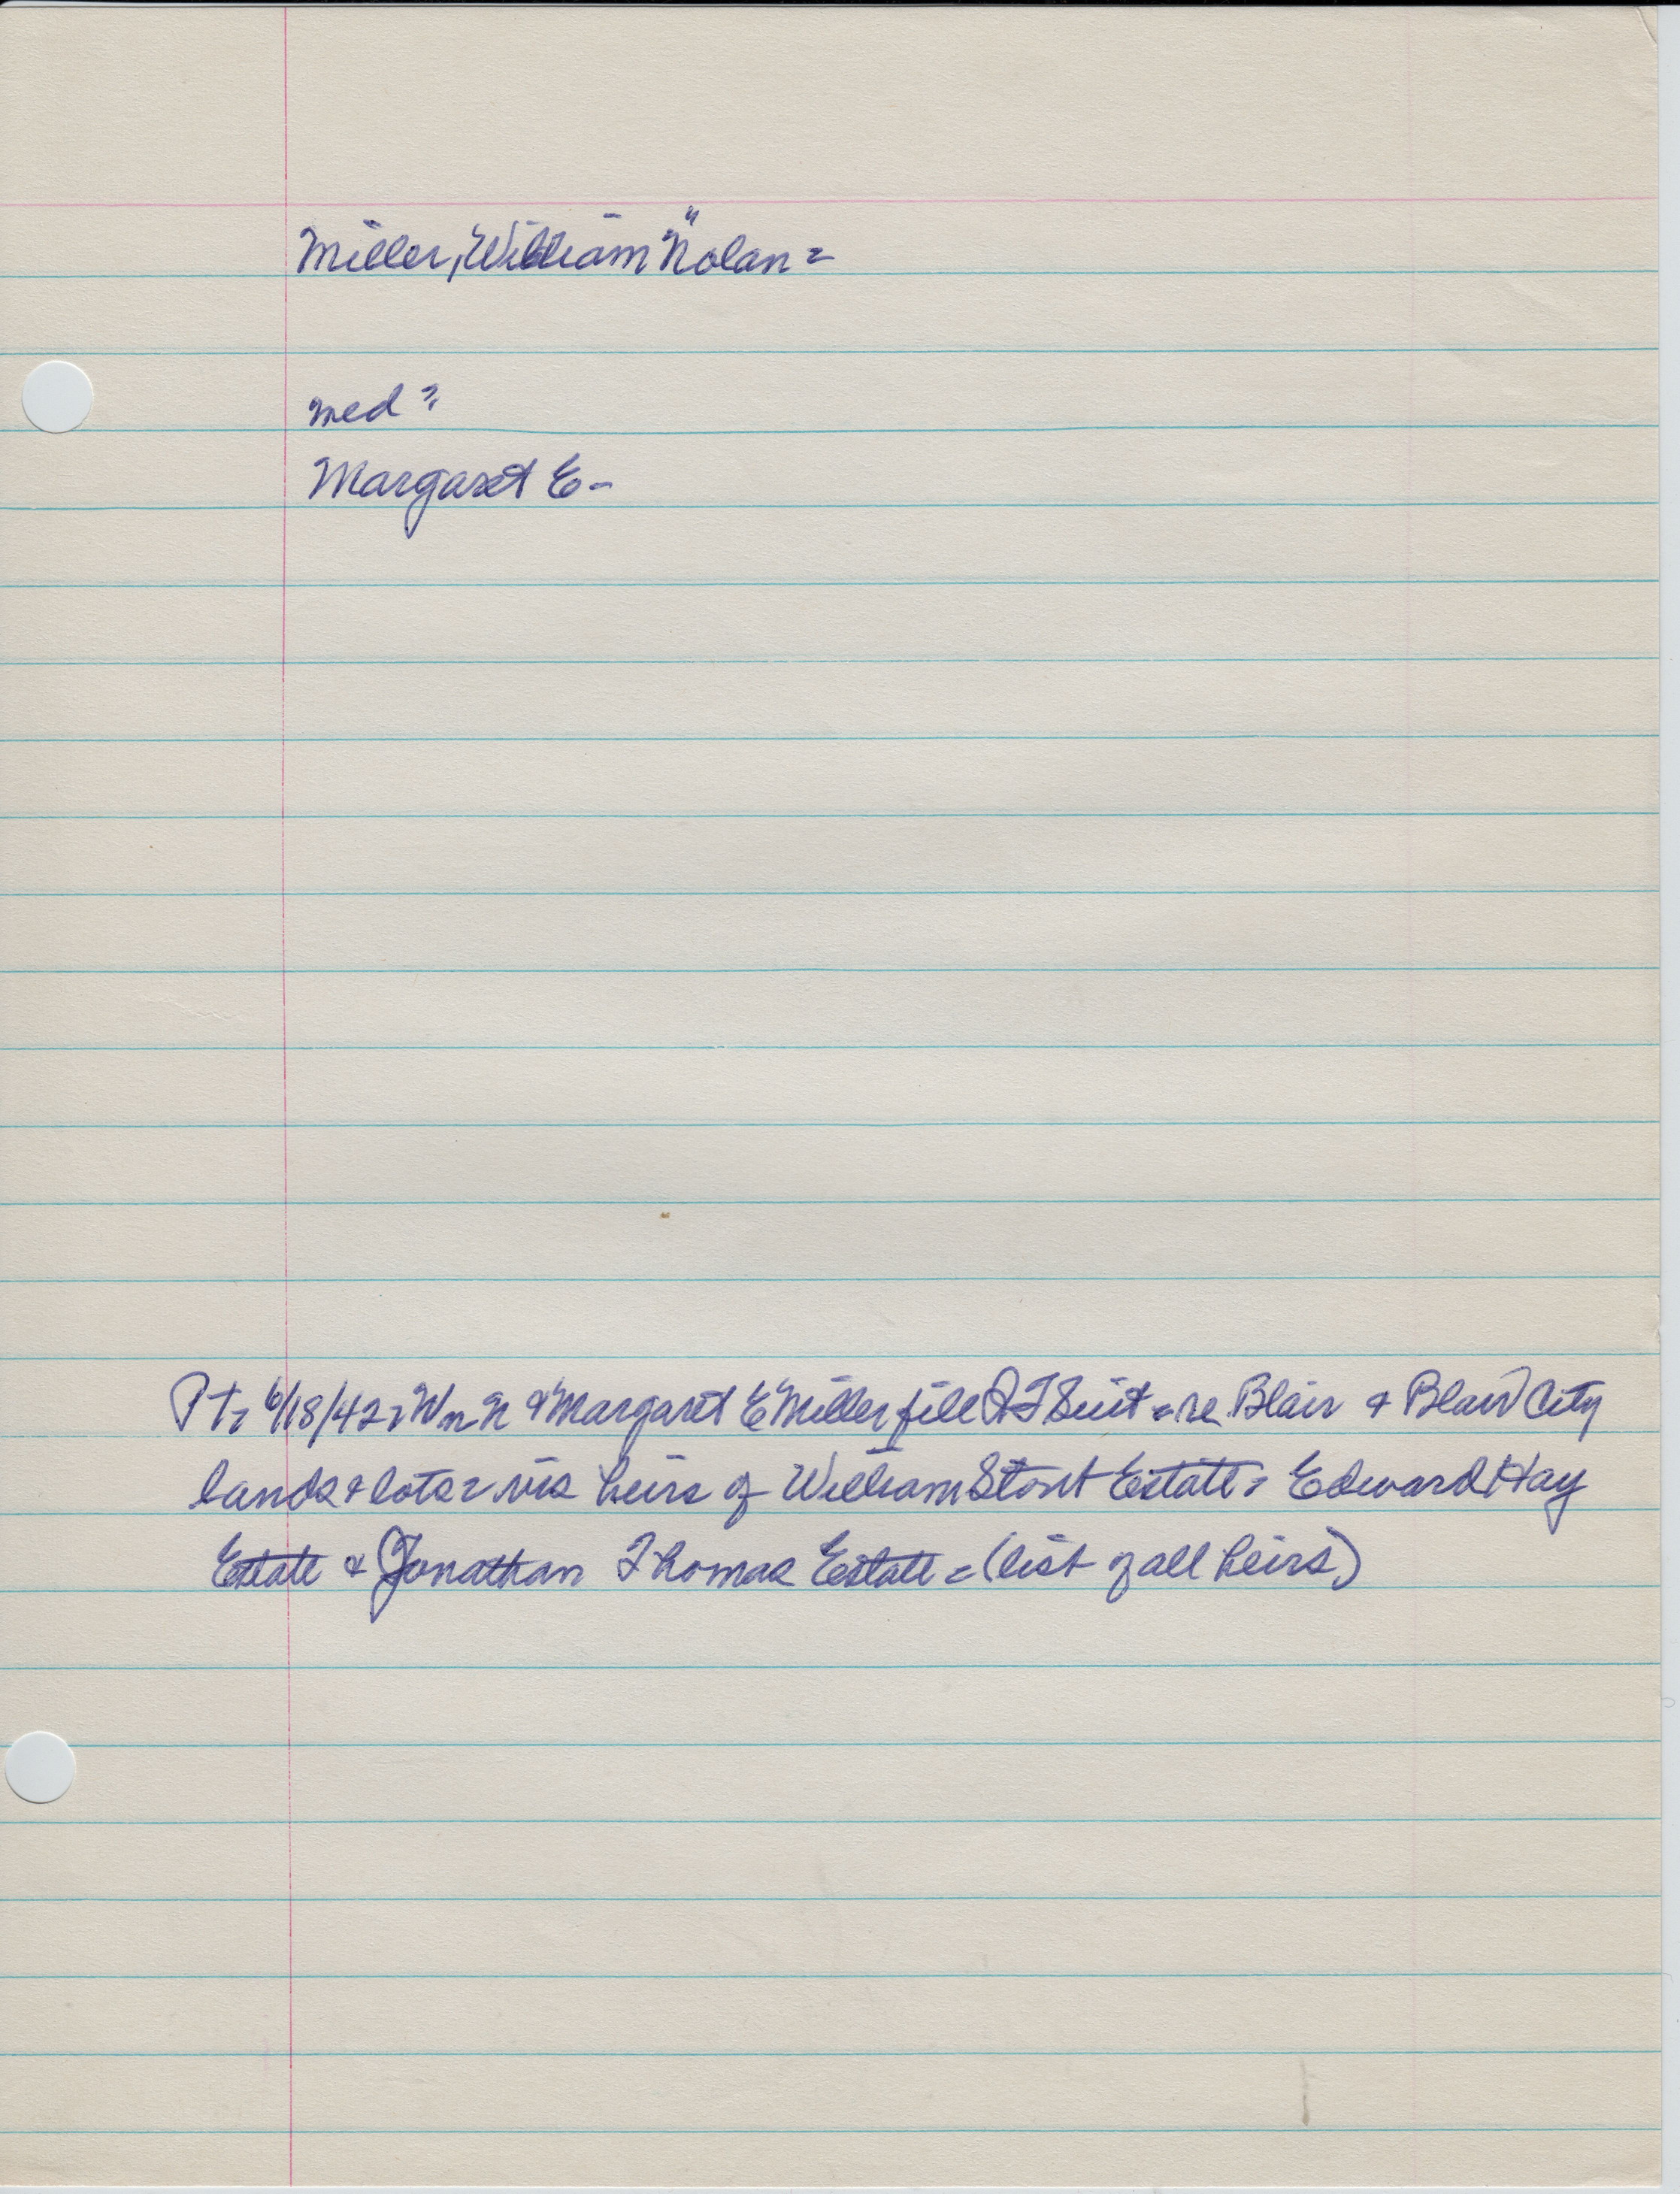 Miller, William "Nolan =
med =
Margaret E -
PT = 6/18/42 = Wm N & Margaret E Miller file QT Suit = re Blair & Blair City
lands & lots = vis heirs of William Stort Estate = Edward Hay
Estate & Jonathan Thomas Estate = (list of all heirs)